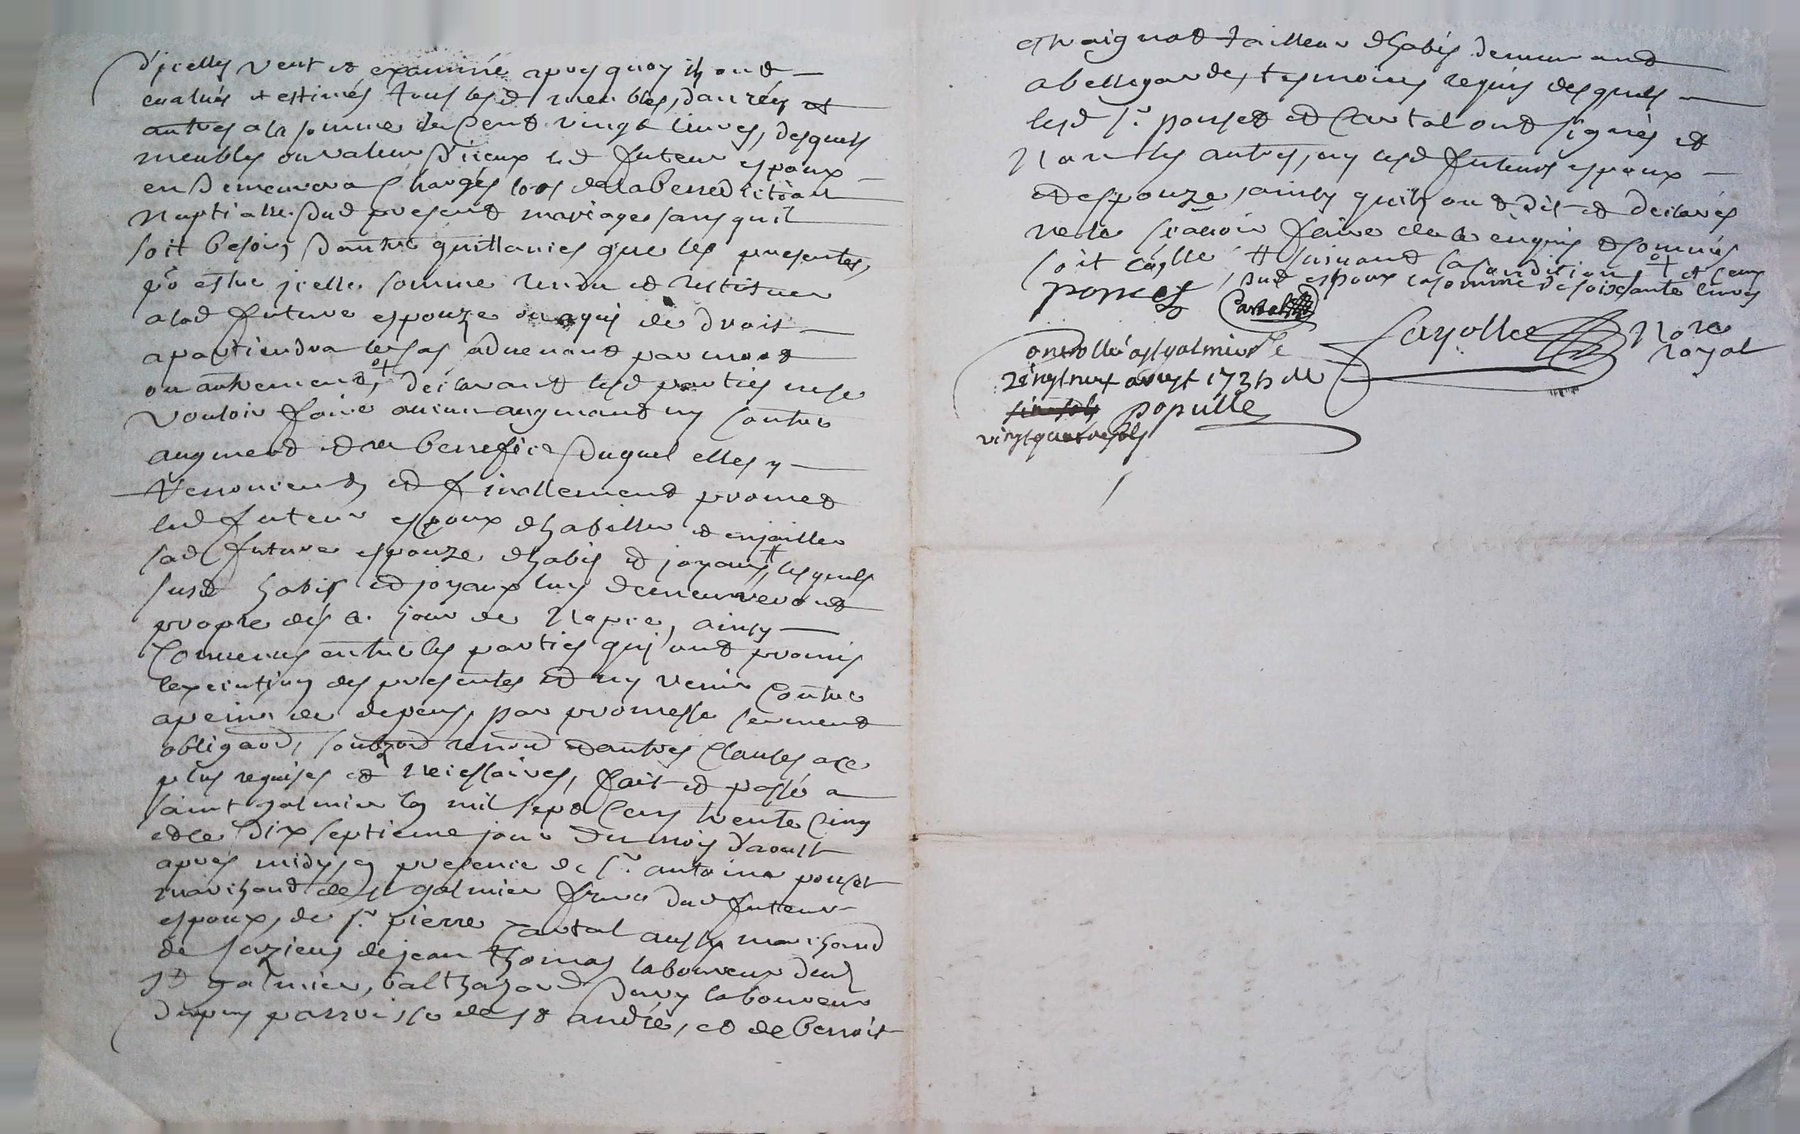 d'icelles veu et examiné apres quoy ils ont
evalués et estimés tous lesd meubles, danrées et
autres a la somme de Cent vingt livres, desquels
meubles ou valeur d'iceux led futeur espoux
en demeurera Chargés lors de la benediction
nuptialle dud present mariage sans quil
soit besoin d'autre quittances que les presentes,
pr estre jcelle somme rendu et restituer
a lad future espouze ou a qui de droit
apartiendra le cas advenant par mort
ou autrement, declarant lesd parties ne se
vouloir faire aucun augmant ny contre
augment et au benefice duquel elles y
renoncent et finallement promet
led futeur espoux d'habiller et enjoailler
sad future espouze d'habis et joyaux, lesquels
susd habis et joyaux luy demeureront
propre dés le jour de Nopce, ainsy
Convenus entre les parties qui ont promis
l'execution des presentes et ny venir Contre
a peine de depens, par promesse serment
obligaon, renon et autres Clauses a ce
plus requises et neicessaires, fait et passé a
saint galmier l'an mil sept Cens trente Cinq
et le dix septieme jour du mois d'aoust
aprés midy, en presence de sr. antoine ponset
marchand de st galmier frere dud futeur
espoux, de sr. pierre Cartal aussy marchand
de jean thomas laboureur dud
st galmier, balthazard laboureur
parroisse de st andré, et de benoit
tailleur d'habis demeurant
a bellegarde, tesmoins requis desquels
lesd sr. ponset et Cartal ont signés et
non les autres, ny lesd futeurs espoux
et espouze, ainsy quils ont dit et declarés
ne le scavoir faire de ce enquis et sommés
soit Collé # suivant sa condition et ceux
dud espoux la somme de soixante livres
ponset Cartal
fayolle nore
royal
Controllé a st galmier le
vingt neuf aoust 1735
populle
vingt quatre sols